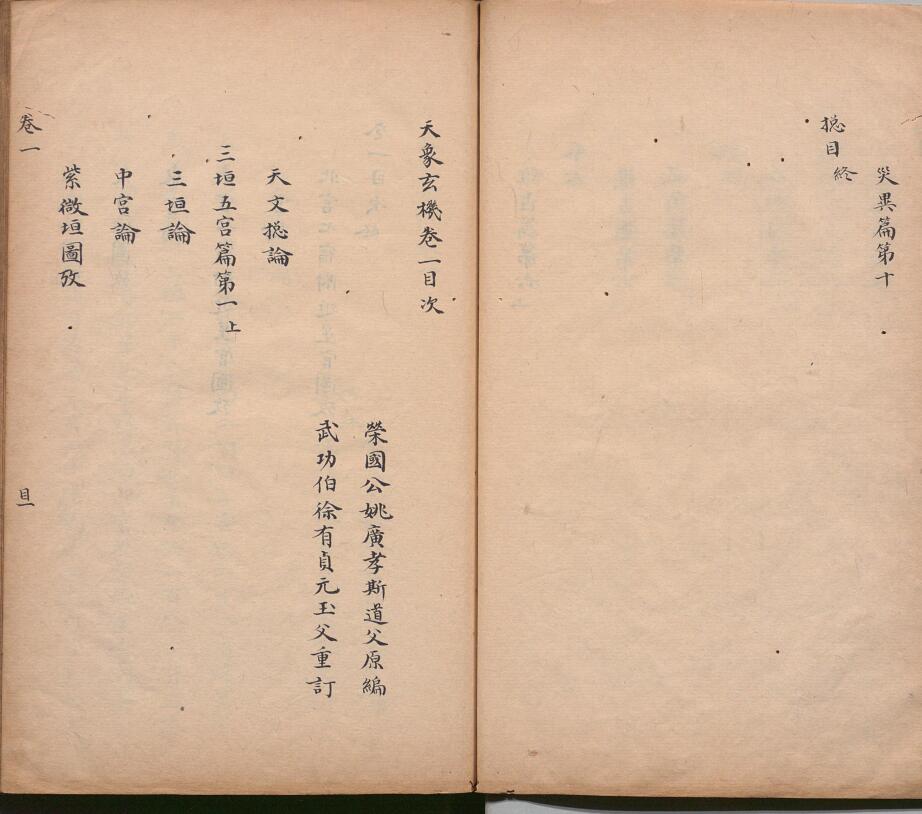 災異篇第十
捴目終
天象玄機卷一目次
榮國公姚廣孝斯道父原編
武功伯徐有貞元玉父重訂
天文捴論
三垣五宮篇第一上
三垣論
中宮論
紫微垣圖攷
卷一
目一